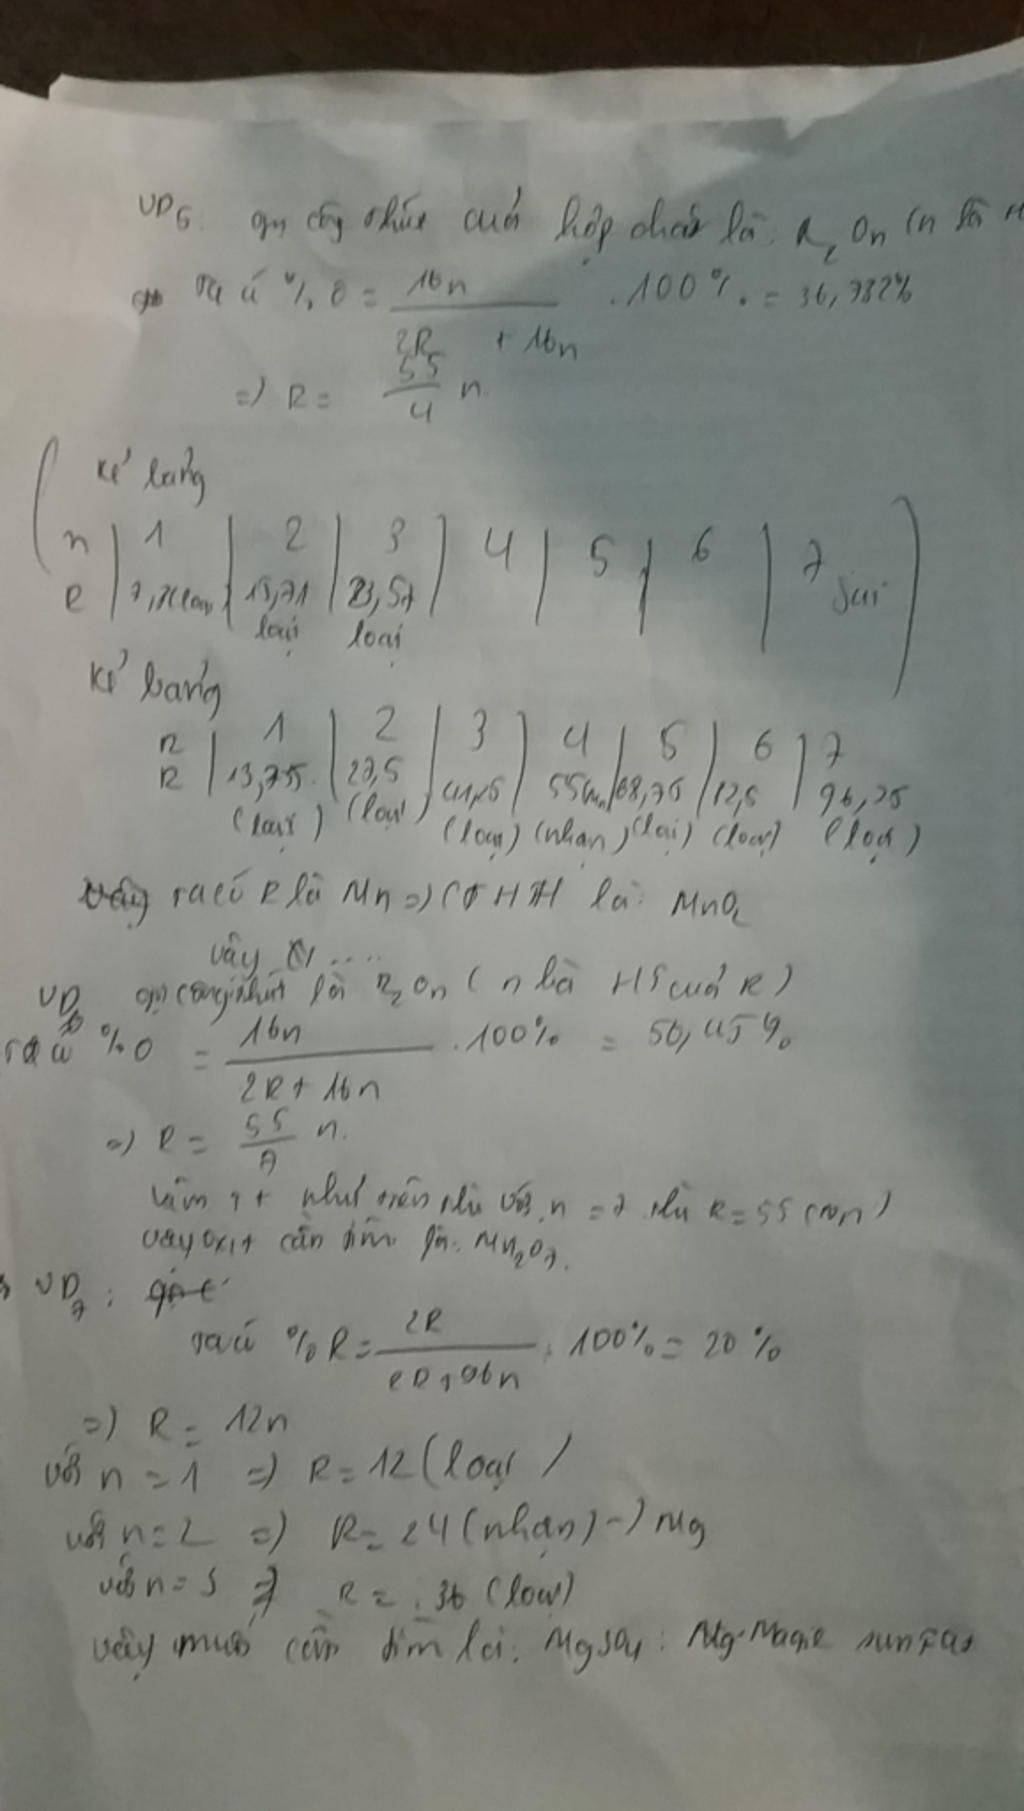 VD5: gọi công thức của hợp chất là: R2On (n là H
ta có % O = 16n / 2R + 16n . 100% = 36,782%
=) R = 55/4 n
Kẻ bảng
n | 1 | 2 | 3 | 4 | 5 | 6 | 7
R | | 15,71 loại | 23,57 loại | sai
Kẻ bảng
n | 1 | 2 | 3 | 4 | 5 | 6 | 7
R | 13,75 | 27,5 | 41,25 | 55Mn | 68,75 | 12,5 | 96,25
(loại) (loại) (loại) (nhận) (loại) (loại) (loại)
Vậy ta có R là Mn =) CTHH là: MnO2
vậy ....
VD6 gọi công thức là R2On (n là HT của R)
ta có % O = 16n / 2R + 16n . 100% = 50,45%
=) R = 55/7 n.
làm như trên thì với n = 7 thì R = 55 (Mn)
vậy oxit cần tìm là: Mn2O7.
VD7:
ta có % R = 2R / 2R + 96n . 100% = 20%
=) R = 12n
với n = 1 =) R = 12 (loại)
với n = 2 =) R = 24 (nhận) -) Mg
với n = 3 =) R = 36 (loại)
vậy muối cần tìm là: MgSO4: Magie sunfat